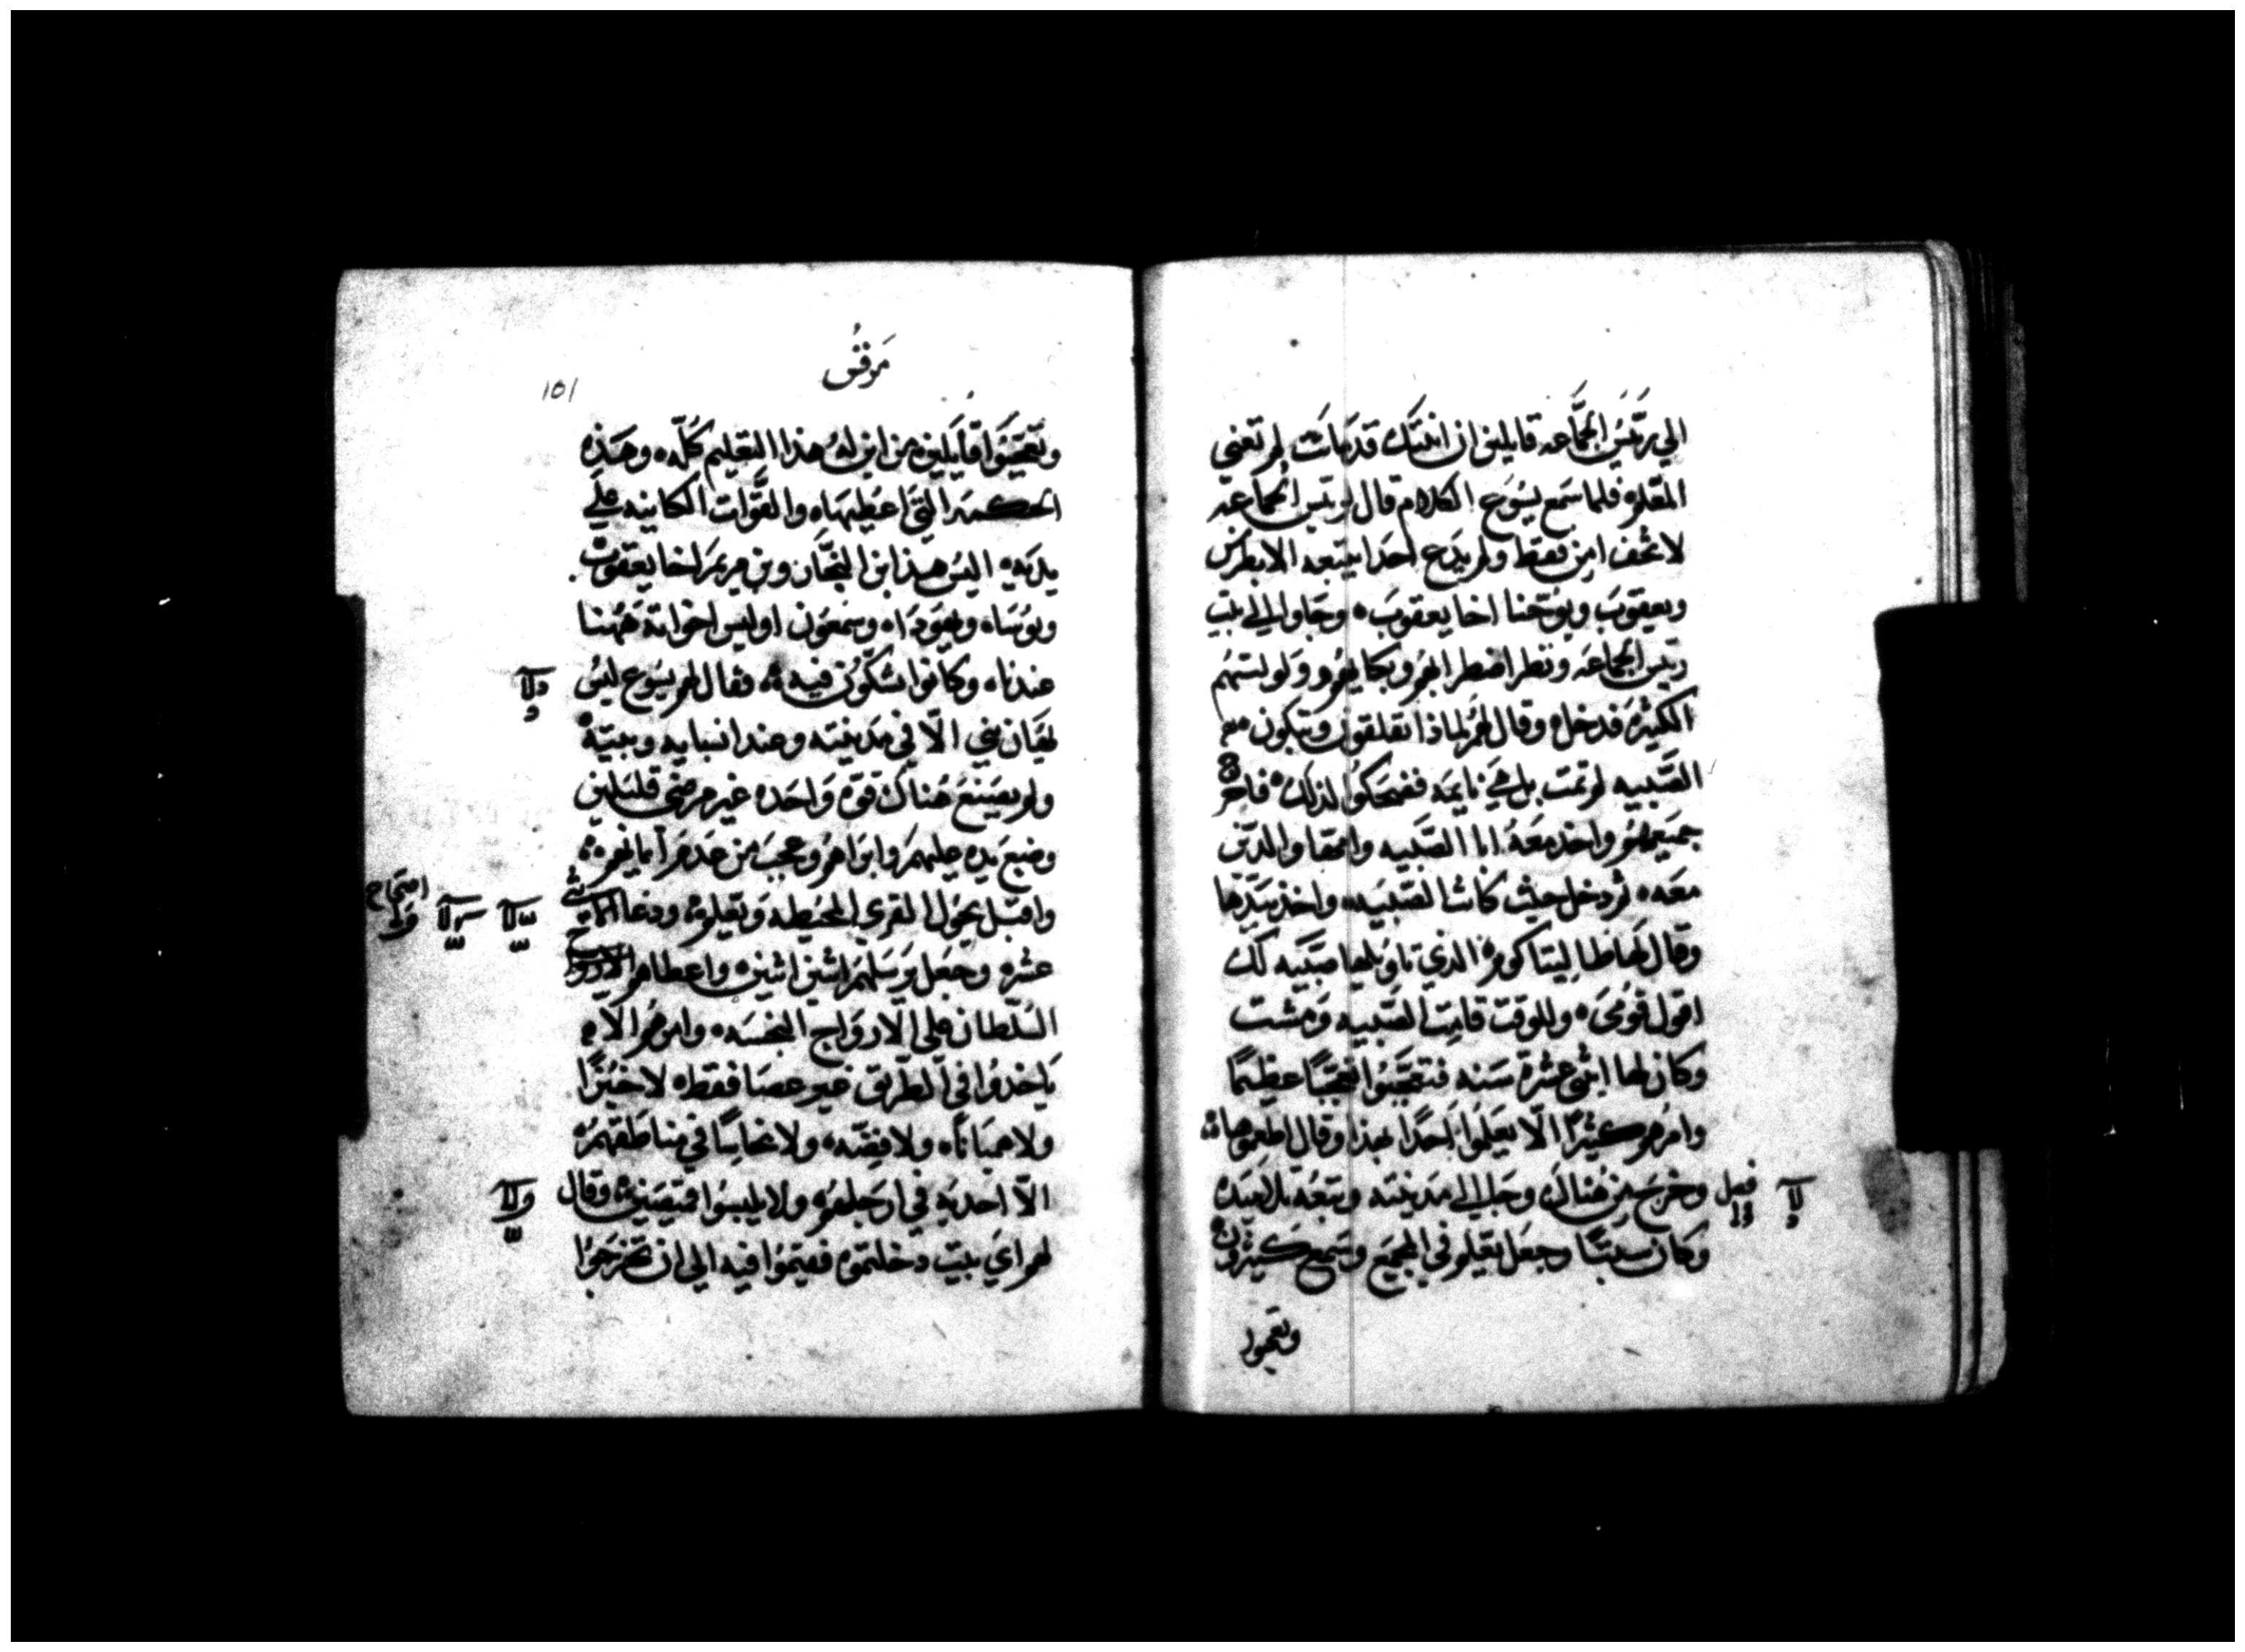 الي رَئيسُ الجَماعه قايلين ان ابنتك قد مَاتت لم تعني
المعَلم فلما سَمع يسُوع الكلام قال لرئيس الجماعه
لا تخف امن فقط ولم يدَع احَدا يتبعه الا بطرس
ويعقوبَ ويوُحنا اخا يعقوبَ ه وجَاوا الي بيت
رئيس الجماعَه ونظر اضطرابهُم وبكايهُم وولولتهُم
الكثيره فدخل ه وقال لهُم لماذا تقلقون وتبكون
الصَبيه لم تمت بل هيَ نايمَه فضحكوُا لذلك ه فاخرج
جميَعهُم واخد معَهُ ابا الصَبيه وامهَا والدين
معَه ه ثم دخل حيث كانت الصَبيه واخذ بيَدِها
وقال لهَا طاليتا كومي الذي تاويلهَا صَبيَه لك
اقول قومي ه وللوقت قامَت الصَبيه ومَشت
وكان لهَا اثني عشرة سَنه فتعجَبوُا تعجبًا عظيمًا
وامرهم كثيرًا الّا يعَلموُا احَدًا بهذا وقال اطعموها
وخرجَ من هُناك وجَا الي مَدينته وتبعُه تلاميَده
فصل
وكان سَبتًا وجعَل يعَلم في المجمَع وسَمع كثيرون
وتعجبوا
مَرقسُ
101
وتعَجَبوُا قايَلين ه من اين لهُ هذا التعَليم كُلّه ه وهَذِه
الحكمَه التيَ اعَطيهَا ه والقوَّات الكاينه عَلي
يديه ه اليسَ هذا ابن النجَّار وبن مريمَ اخا يعقوبَ
ويوُسَا ه ويهَودَا ه وسمَعون اوليس اخواتهَ هَهُنا
عندنا ه وكانوا يشكّوُن فيه فقال لهم يسُوع ليسَ
يهَان نبي الّا في مَدينته وعند انسبايه وبيتَه
ولم يصَنعَ هُناك قوّه وَاحَده غير مرضى قليَلين
وضع يَده عليهمَ وابرَاهُم وعجبَ من عَدم ايمانهم
واقبل يجَول القري المحيَطه ويعَلم ودعا الاثني
عشره وجَعل يرسَلهمَ اثنين اثنين ه واعطاهم
السُلّطان علي الارواح النجسَه ه وامرهُم الا
يَاخدوُا في الطَريق غير عصَا فقط ه لا خبُزًا
ولا هميَانًا ه ولا فِضّه ه ولا نحاسًا في مناطقهمُ ه
الّا احديه في ارجَلهُم ه ولا يلبسوُا قميَصَين وقال
لهم ايَ بيت دخلتموه فقيمَوُا فيه الي ان تخرجَوا